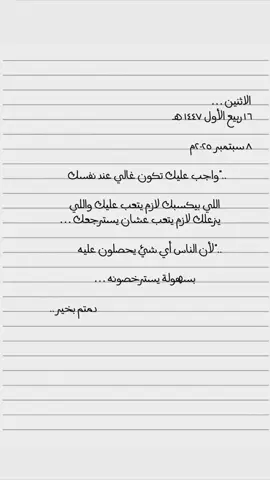 الاثنين ...
١٦ ربيع الأول ١٤٤٧ هـ
٨ سبتمبر ٢٠٢٥م
.."واجب عليك تكون غالي عند نفسك
اللي بيكسبك لازم يتعب عليك واللي
يزعلك لازم يتعب عشان يسترجعك ...
.."لأن الناس أي شيً يحصلون عليه
بسهولة يسترخصونه ...
دمتم بخير ..